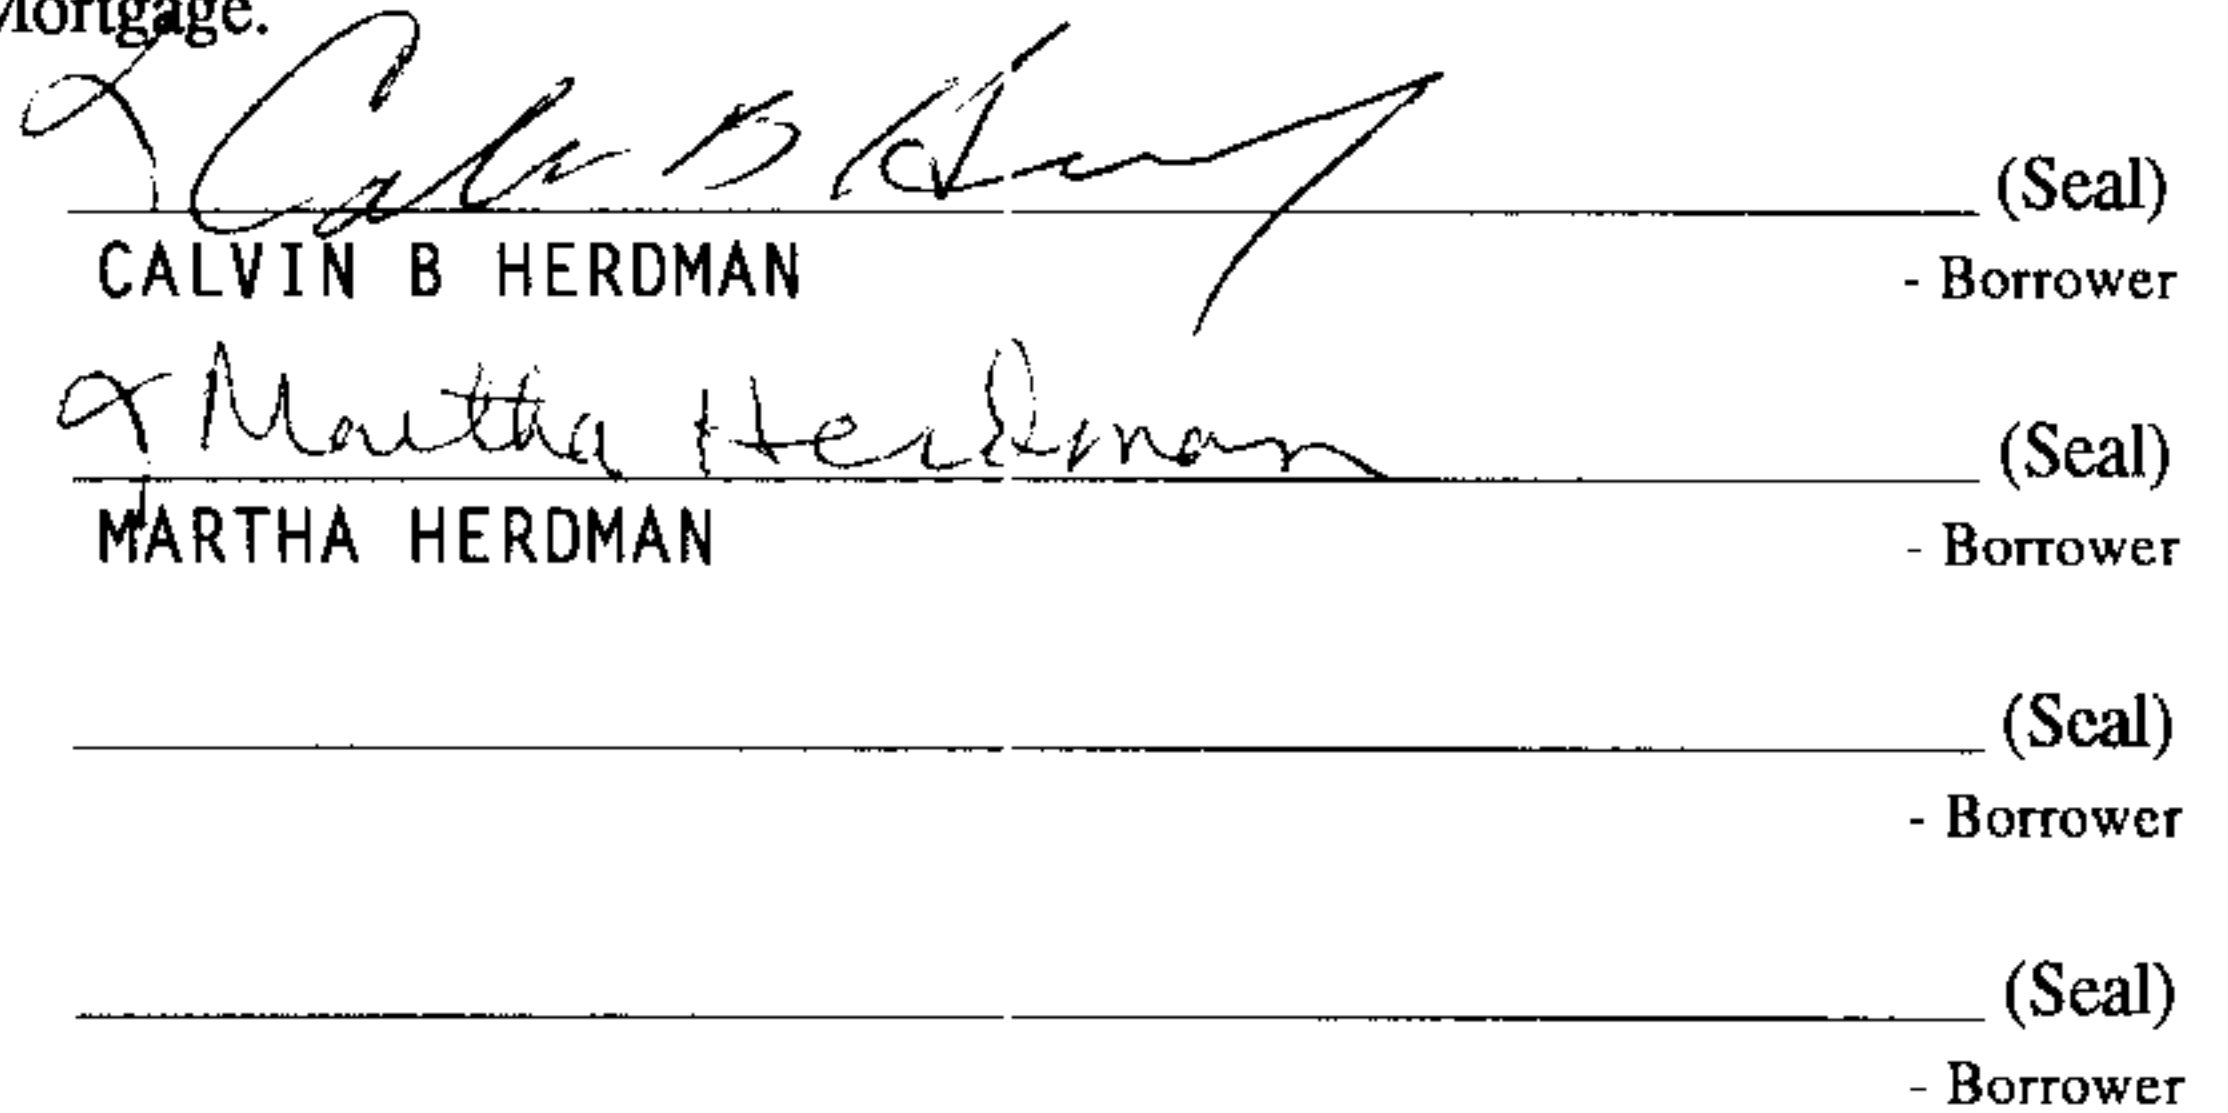 Mortgage.
Calvin B Herdman (Seal)
CALVIN B HERDMAN - Borrower
Martha Herdman (Seal)
MARTHA HERDMAN - Borrower
(Seal)
- Borrower
(Seal)
- Borrower